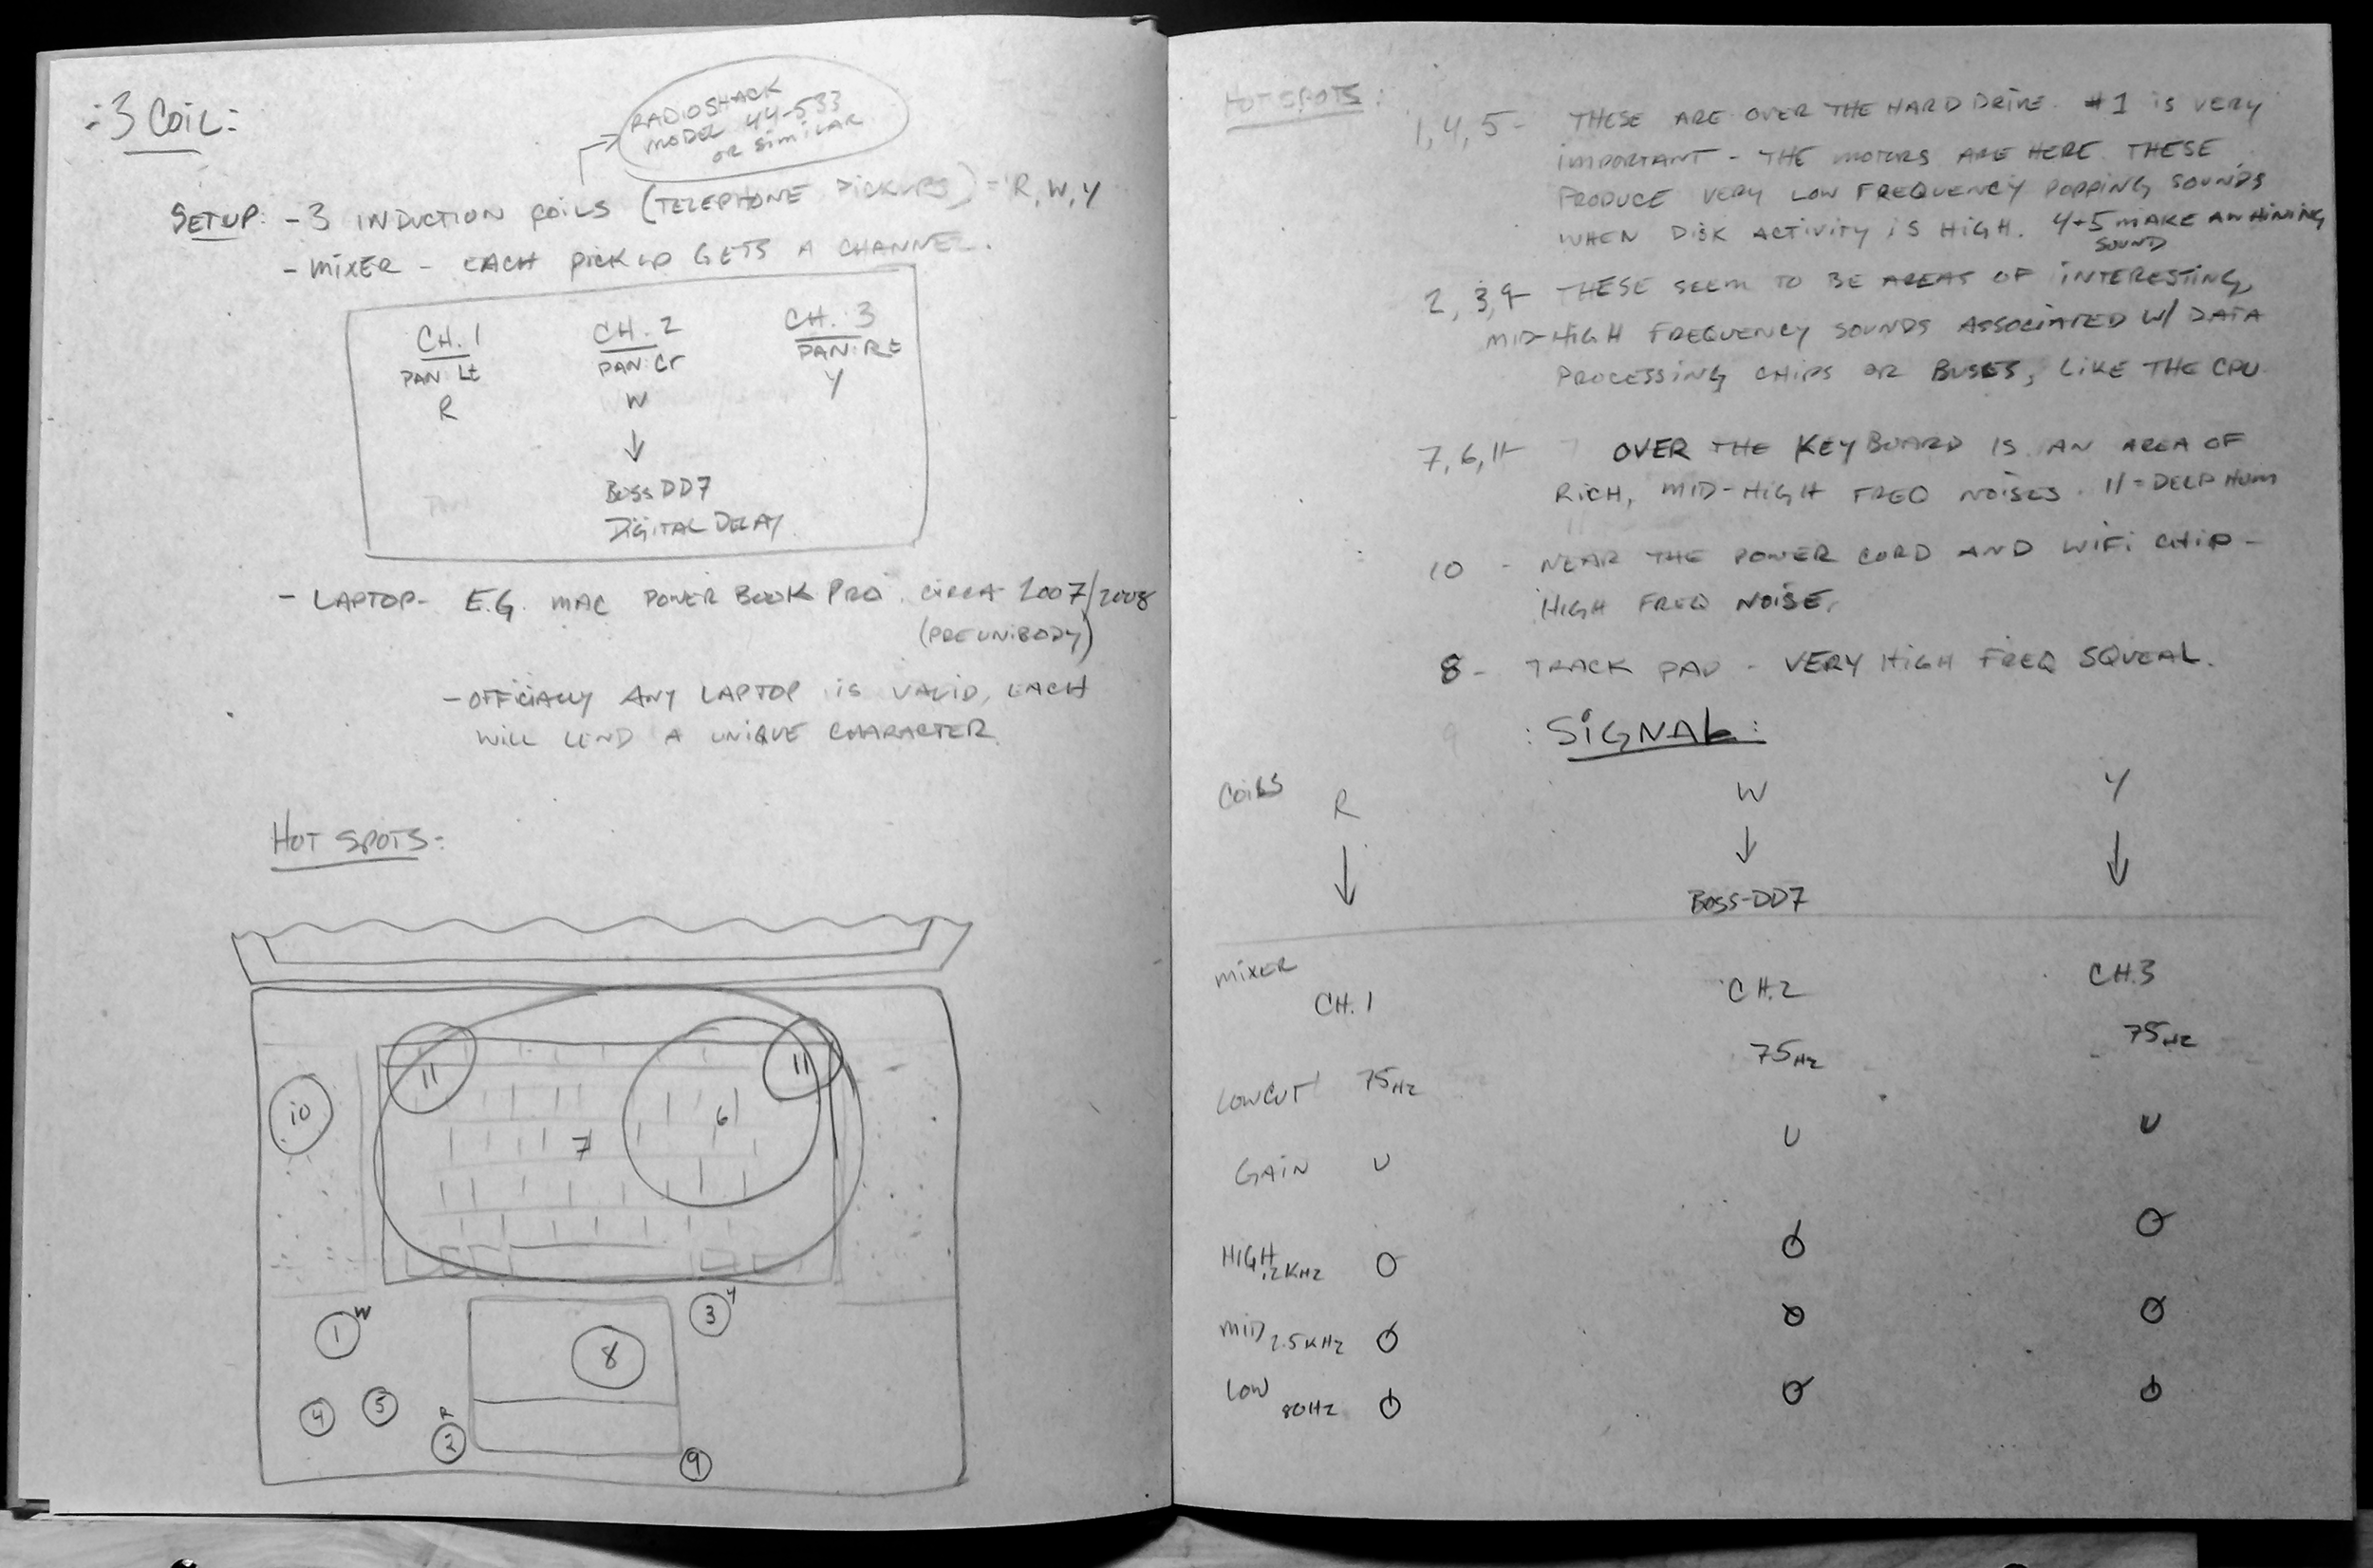 :3 COIL:
RADIOSHACK
MODEL 44-533
OR SIMILAR
SETUP: - 3 INDUCTION COILS (TELEPHONE PICKUPS) = R, W, Y
- MIXER - EACH PICKUP GETS A CHANNEL.
CH. 1 CH. 2 CH. 3
PAN: Lt PAN: Cr PAN: Rt
R W Y
BOSS DD7
DIGITAL DELAY
- LAPTOP - E.G. MAC POWER BOOK PRO. CIRCA 2007/2008
(PRE UNIBODY)
- OFFICIALLY ANY LAPTOP IS VALID, EACH
WILL LEND A UNIQUE CHARACTER
HOT SPOTS:
11 11
10
7 6
1 W
3 Y
8
4 5
R
2
9
HOT SPOTS:
1, 4, 5 - THESE ARE OVER THE HARD DRIVE. #1 IS VERY
IMPORTANT - THE MOTORS ARE HERE. THESE
PRODUCE VERY LOW FREQUENCY POPPING SOUNDS
WHEN DISK ACTIVITY IS HIGH. 4+5 MAKE A WHINING
SOUND
2, 3, 9 - THESE SEEM TO BE AREAS OF INTERESTING,
MID-HIGH FREQUENCY SOUNDS ASSOCIATED W/ DATA
PROCESSING CHIPS OR BUSES, LIKE THE CPU.
7, 6, 11 - OVER THE KEYBOARD IS AN AREA OF
RICH, MID-HIGH FREQ NOISES. 11 = DEEP HUM
10 - NEAR THE POWER CORD AND WIFI CHIP -
HIGH FREQ NOISE.
8 - TRACK PAD - VERY HIGH FREQ SQUEAL.
:SIGNAL:
COILS R W Y
BOSS-DD7
MIXER
CH. 1 CH.2 CH.3
LOWCUT 75Hz 75Hz 75Hz
GAIN U U U
HIGH 12KHZ
MID 2.5KHZ
LOW 80HZ